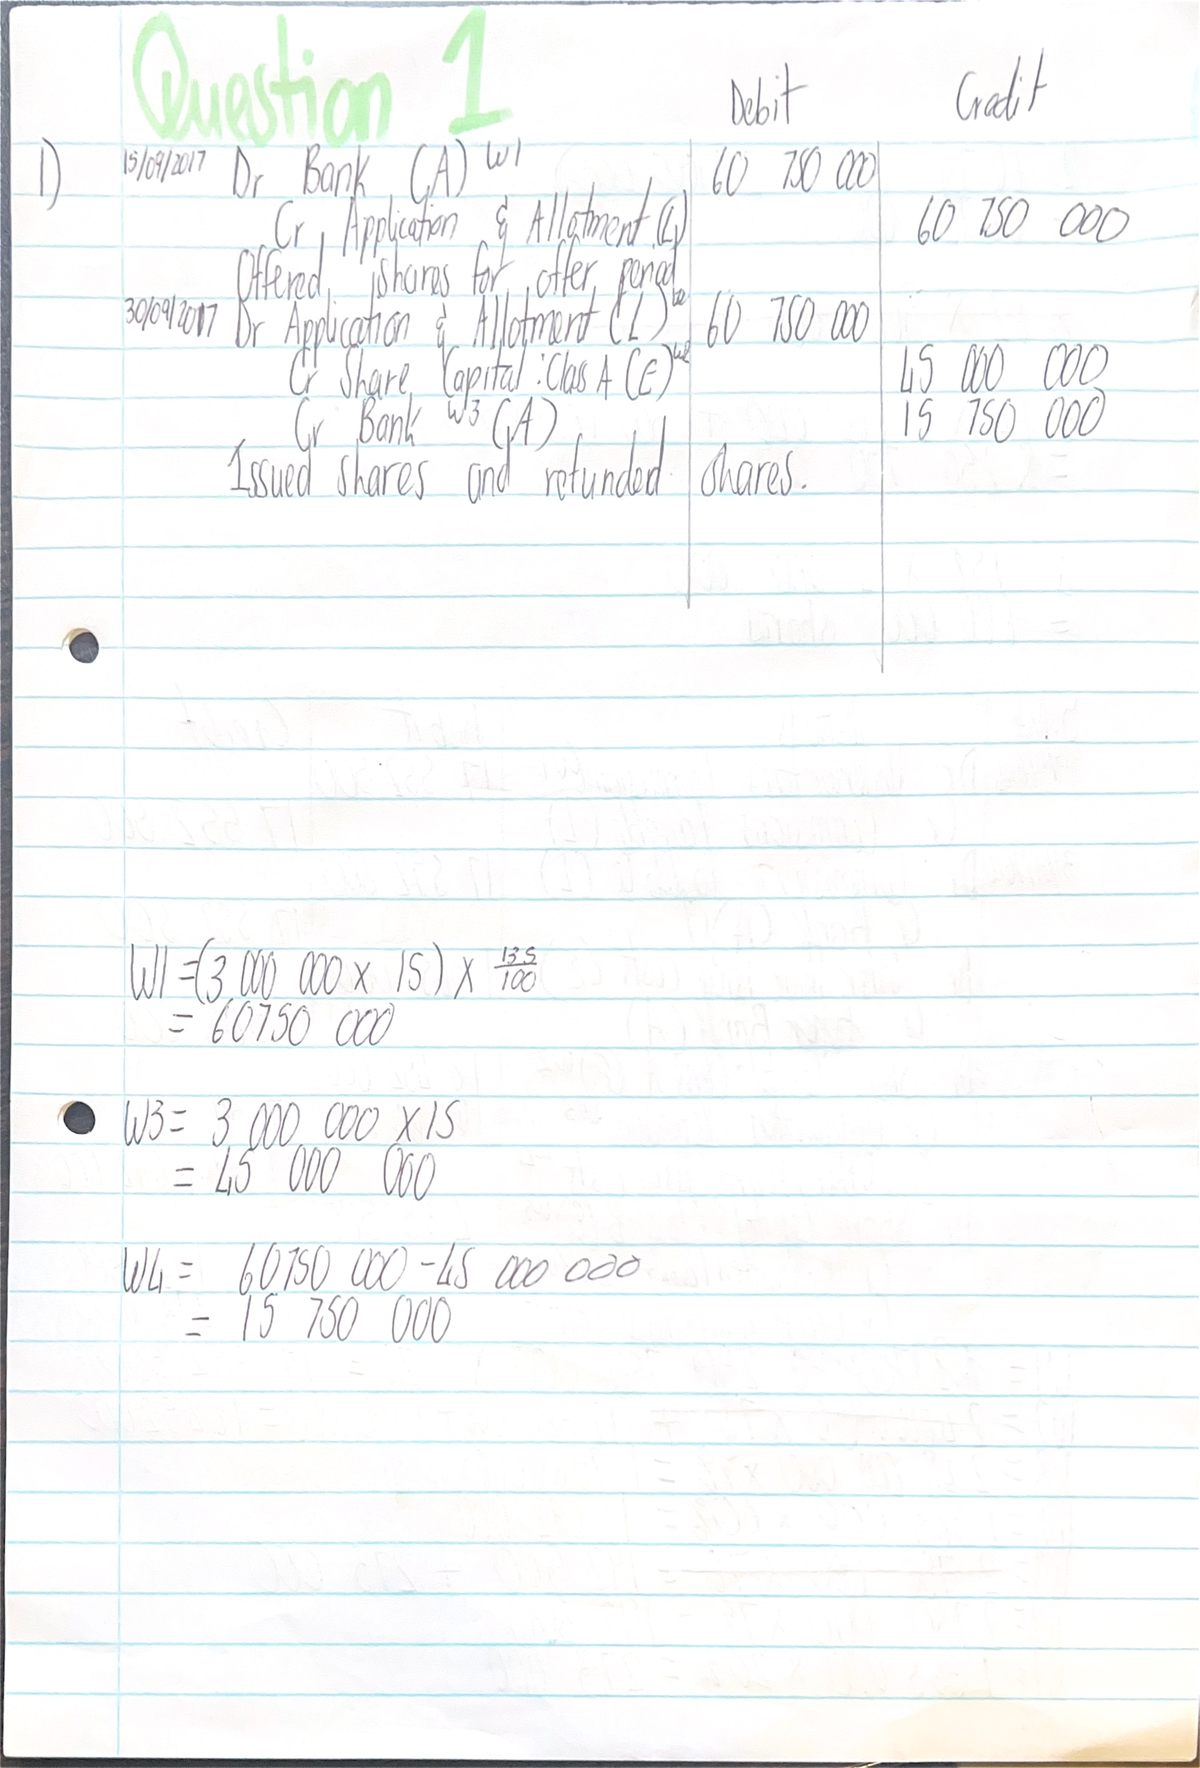 Question 1
Debit Credit
1) 15/09/2017 Dr Bank (A) W1 60 750 000
Cr Application & Allotment (L) 60 750 000
Offered shares for offer period
30/09/2017 Dr Application & Allotment (L) 60 750 000
Cr Share Capital: Class A (E) 45 000 000
Cr Bank W3 (A) 15 750 000
Issued shares and refunded shares.
W1 = (3 000 000 x 15) x 135/100
= 60750 000
W3 = 3 000 000 x 15
= 45 000 000
W4 = 60750 000 - 45 000 000
= 15 750 000